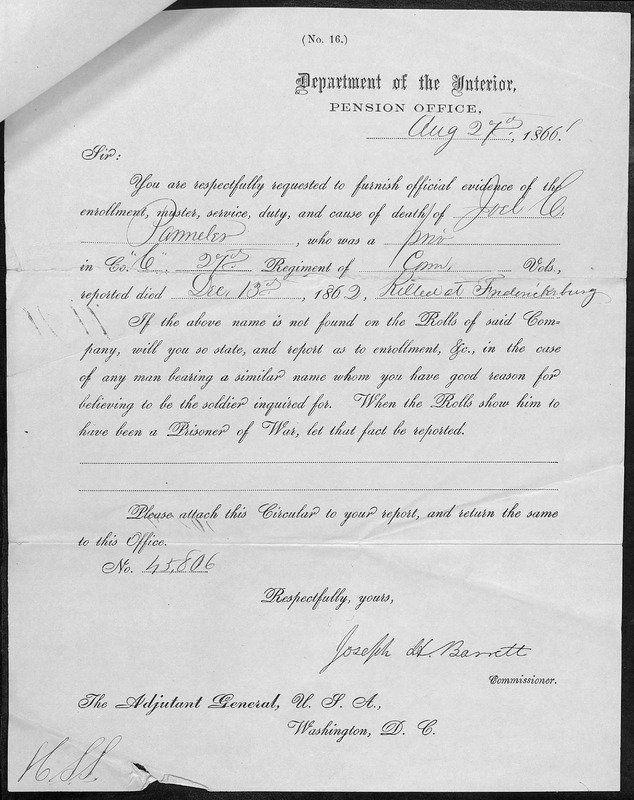 (No. 16.)
Department of the Interior,
PENSION OFFICE,
Aug 27d, 1866.
Sir:
You are respectfully requested to furnish official evidence of the
enrollment, muster, service, duty, and cause of death of Joel C.
Parmeles, who was a priv
in Co. "C", 27d Regiment of Conn, Vols.,
reported died Dec. 13d, 1862, Killed at Fredericksburg
If the above name is not found on the Rolls of said Com-
pany, will you so state, and report as to enrollment, &c., in the case
of any man bearing a similar name whom you have good reason for
believing to be the soldier inquired for. When the Rolls show him to
have been a Prisoner of War, let that fact be reported.
Please attach this Circular to your report, and return the same
to this Office.
No. 45,806
Respectfully, yours,
Joseph H. Barrett
Commissioner.
The Adjutant General, U. S. A.,
Washington, D. C.
H.S.S.